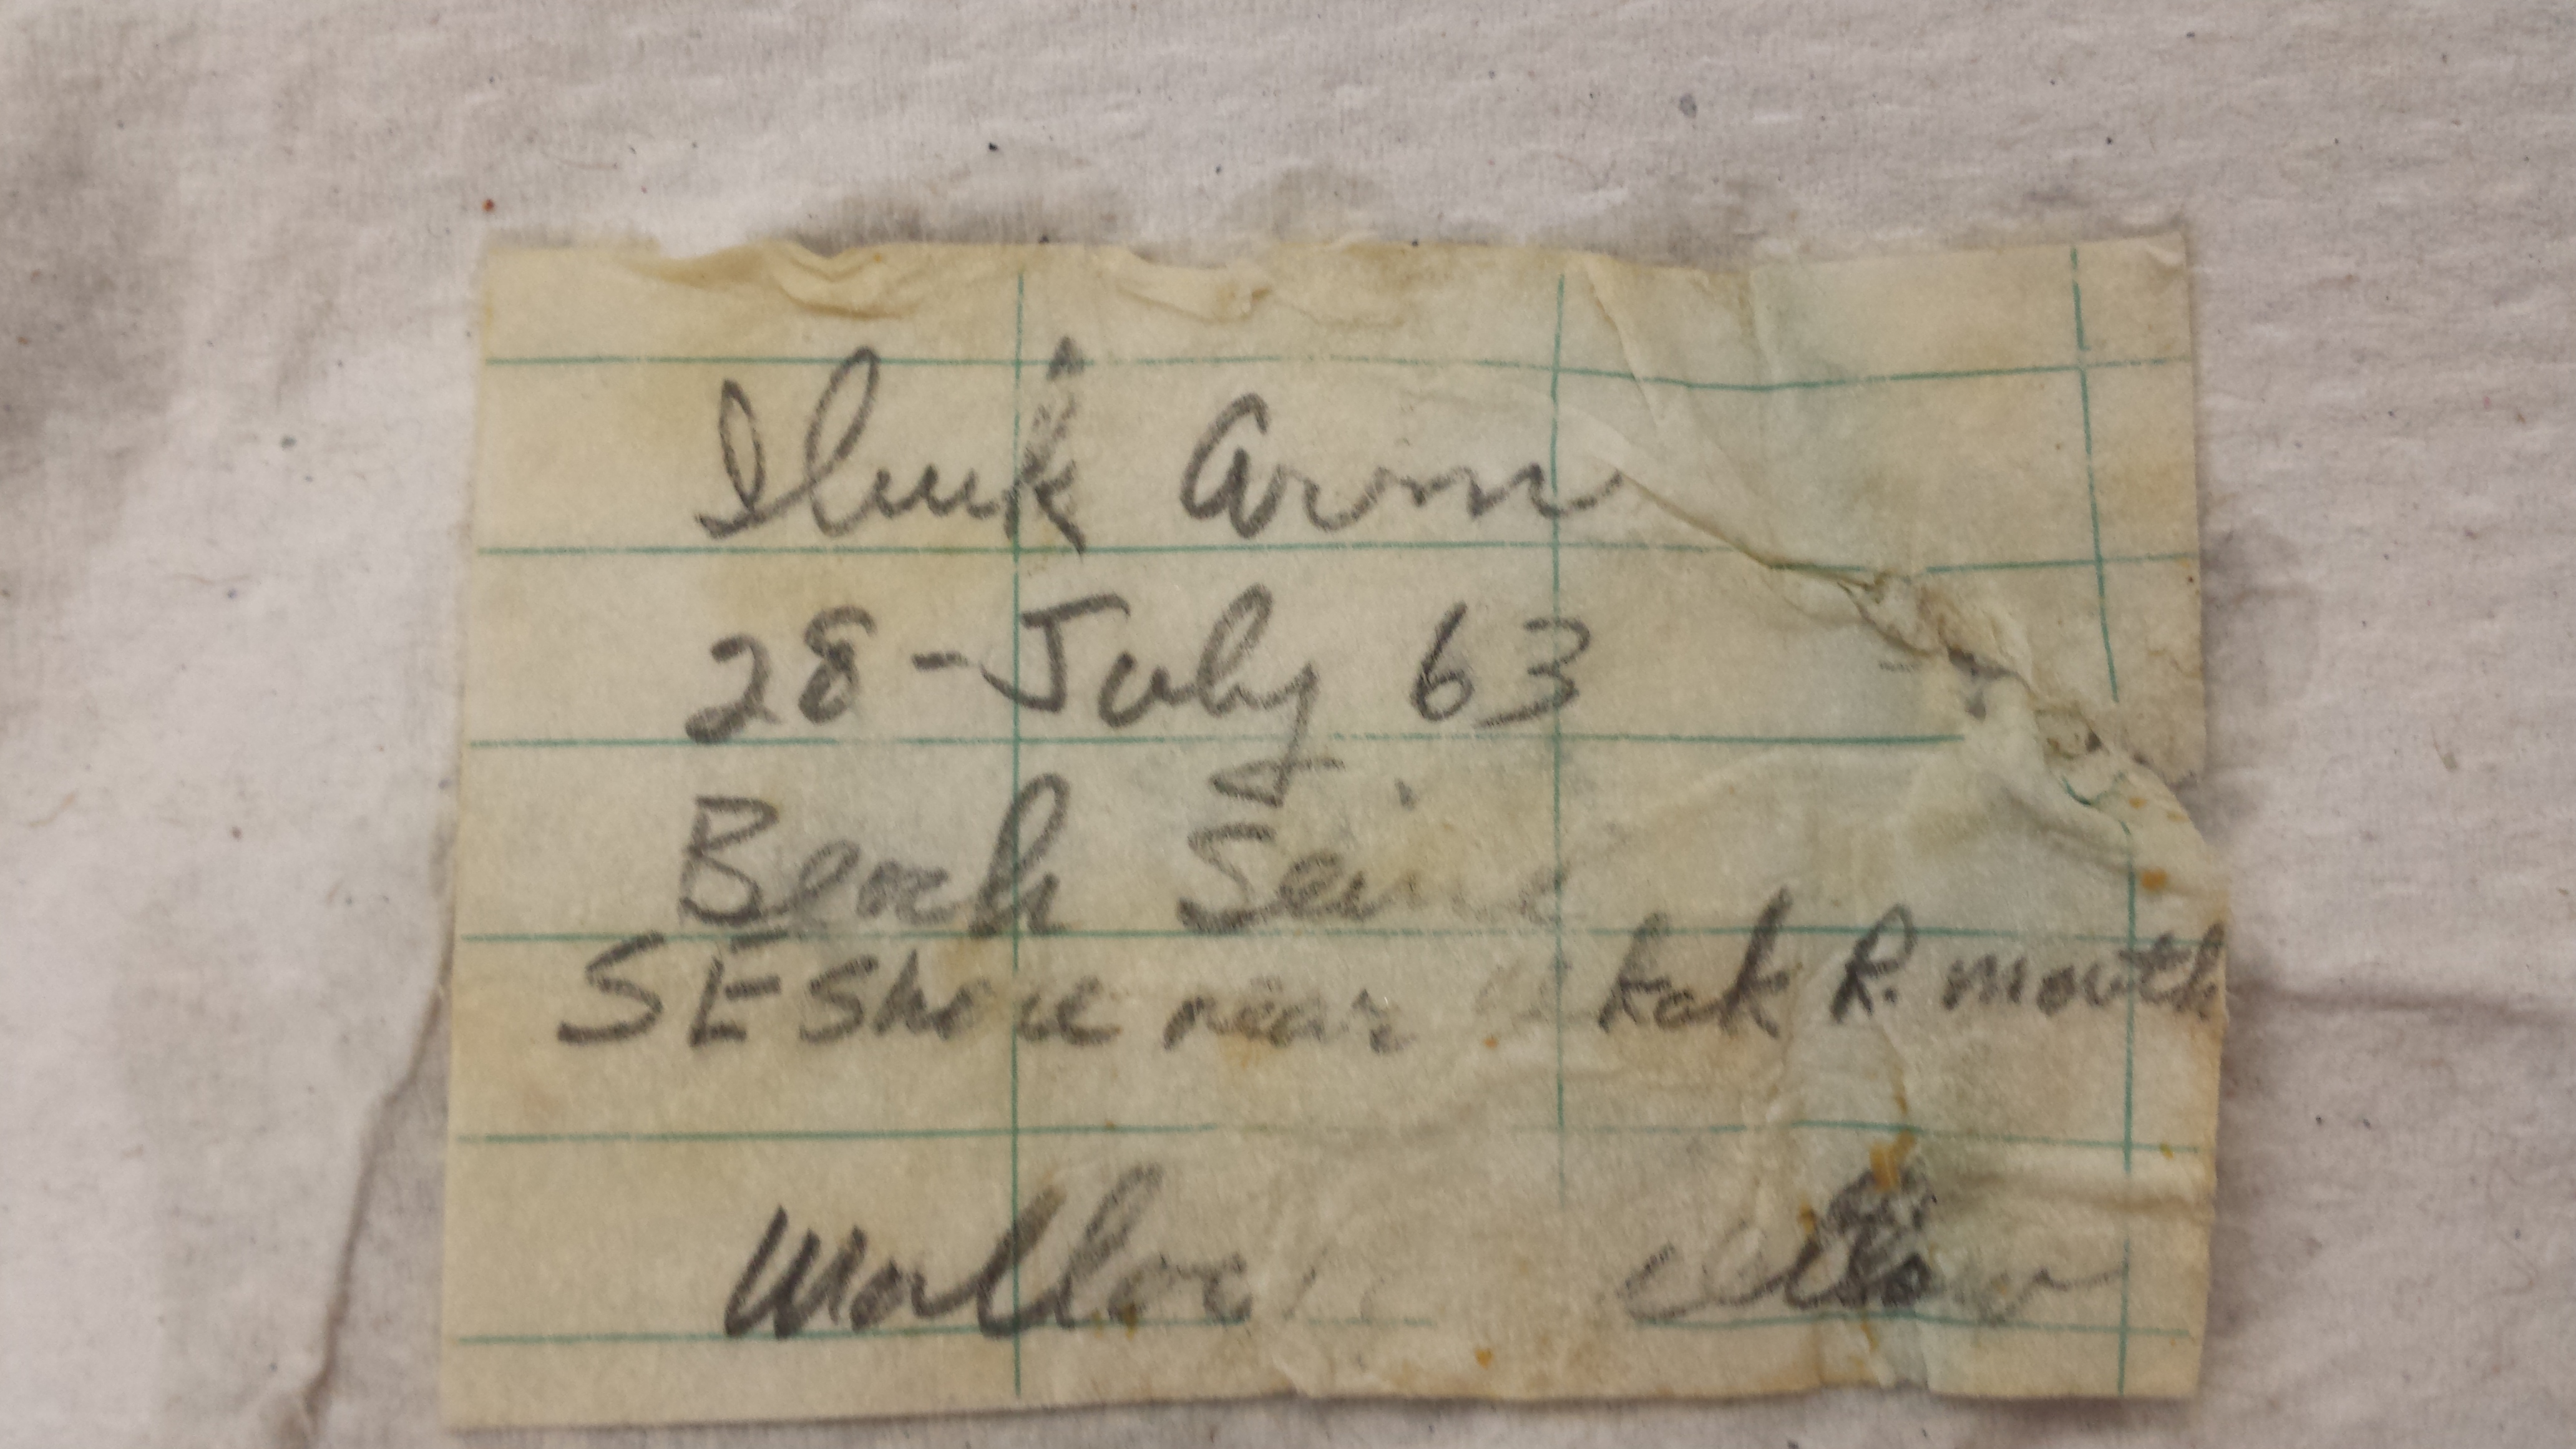 Iluk Arm
28-July 63
Beach Seine
SE Shore near kok R. mouth